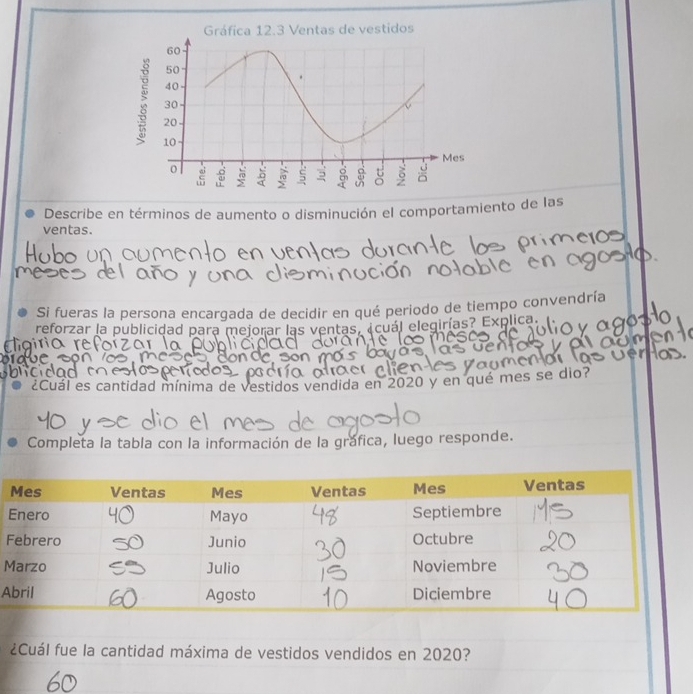 Gráfica 12.3 Ventas de vestidos
Vestidos vendidos
60
50
40
30
20
10
0
Ene. Feb. Mar. Abr. May. Jun. Jul. Ago. Sep. Oct. Nov. Dic. Mes
Describe en términos de aumento o disminución el comportamiento de las
ventas.
Hubo un aumento en ventas durante los primeros
meses del año y una disminución notable en agosto.
Si fueras la persona encargada de decidir en qué periodo de tiempo convendría
reforzar la publicidad para mejorar las ventas, ¿cuál elegirías? Explica.
Eligiria reforzar la publicidad durante los meses de julio y agosto
porque son los meses donde son más bajas las ventas y al aumento
publicidad en estos periodos podría atraer clientes y aumentar las ventas.
¿Cuál es cantidad mínima de vestidos vendida en 2020 y en qué mes se dio?
10 y se dio el mes de agosto
Completa la tabla con la información de la gráfica, luego responde.
Mes Ventas Mes Ventas Mes Ventas
Enero 40 Mayo 48 Septiembre
Febrero 50 Junio 30 Octubre 20
Marzo 55 Julio 15 Noviembre 30
Abril 60 Agosto 10 Diciembre 40
¿Cuál fue la cantidad máxima de vestidos vendidos en 2020?
60